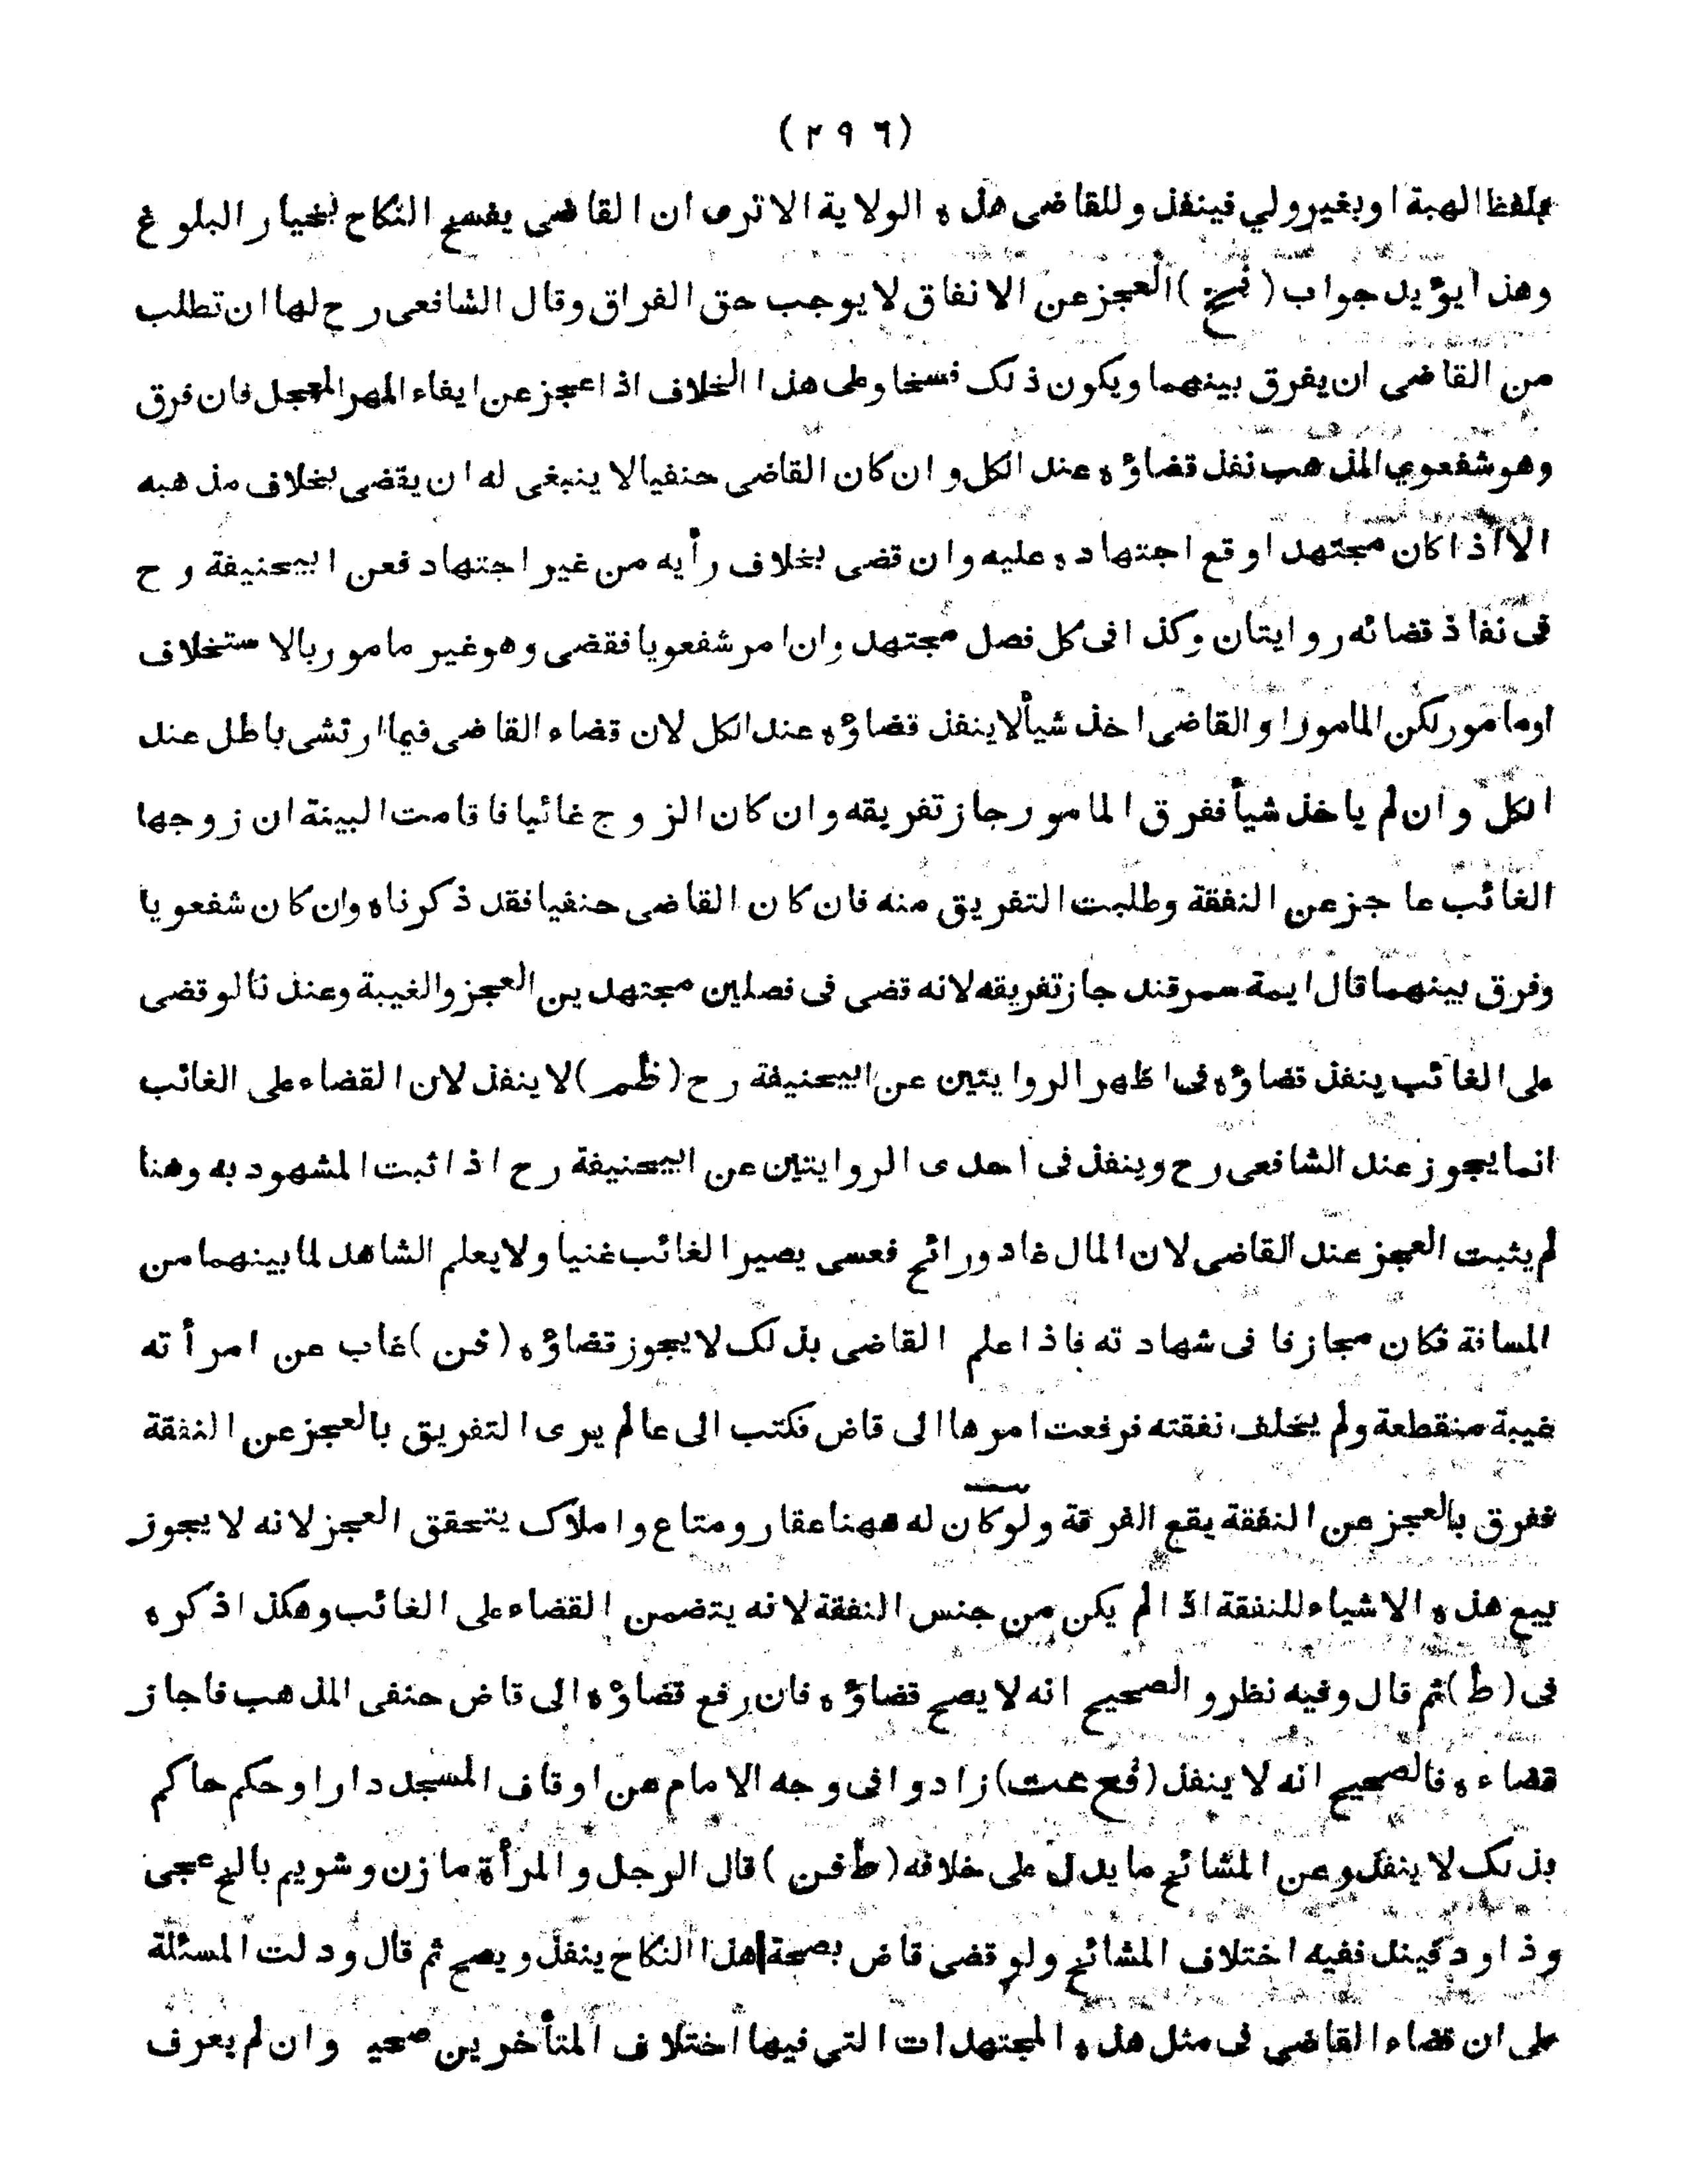 (٢٩٦)
بلفظ الهبة اوبغير ولي فينفذ وللقاضى هذه الولاية الا ترى ان القاضى يفسخ النكاح بخيار البلوغ
وهذا يؤيد جواب (نخ) العجز عن الانفاق لا يوجب حق الفراق وقال الشافعى رح لها ان تطلب
من القاضى ان يفرق بينهما ويكون ذلك فسخا وعلى هذا الخلاف اذا عجز عن ايفاء المهر المعجل فان فرق
وهو شفعوي المذهب نفذ قضاؤه عند الكل وان كان القاضى حنفيا لا ينبغى له ان يقضى بخلاف مذهبه
الا اذا كان مجتهدا وقع اجتهاده عليه وان قضى بخلاف رأيه من غير اجتهاد فعن ابيحنيفة رح
فى نفاذ قضائه روايتان وكذا فى كل فصل مجتهد وان امر شفعويا فقضى وهو غير مامور بالاستخلاف
اومامور لكن المامور او القاضى اخذ شيأ لا ينفذ قضاؤه عند الكل لان قضاء القاضى فيما ارتشى باطل عند
الكل وان لم ياخذ شيأ ففرق المامور جاز تفريقه وان كان الزوج غائبا فاقامت البينة ان زوجها
الغائب عاجز عن النفقة وطلبت التفريق منه فان كان القاضى حنفيا فقد ذكرناه وان كان شفعويا
وفرق بينهما قال ايمة سمرقند جاز تفريقه لانه قضى فى فصلين مجتهدين العجز والغيبة وعندنا لو قضى
على الغائب ينفذ قضاؤه فى اظهر الروايتين عن ابيحنيفة رح (ظم) لا ينفذ لان القضاء على الغائب
انما يجوز عند الشافعى رح وينفذ فى احدى الروايتين عن ابيحنيفة رح اذا ثبت المشهود به وهنا
لم يثبت العجز عند القاضى لان المال غاد ورائح فعسى يصير الغائب غنيا ولا يعلم الشاهد لما بينهما من
المسافة فكان مجازفا فى شهادته فاذا علم القاضى بذلك لا يجوز قضاؤه (فن) غاب عن امرأته
غيبة منقطعة ولم يخلف نفقته فرفعت امرها الى قاض فكتب الى عالم يرى التفريق بالعجز عن النفقة
ففرق بالعجز عن النفقة يقع الفرقة ولوكان له ههنا عقار ومتاع واملاك يتحقق العجز لانه لا يجوز
بيع هذه الاشياء للنفقة اذا لم يكن من جنس النفقة لانه يتضمن القضاء على الغائب وهكذا ذكره
فى (ط) ثم قال وفيه نظر والصحيح انه لا يصح قضاؤه فان رفع قضاؤه الى قاض حنفى المذهب فاجاز
قضاءه فالصحيح انه لا ينفذ (فع عت) زادوا فى وجه الامام من اوقاف المسجد دارا وحكم حاكم
بذلك لا ينفذ وعن المشائخ ما يدل على خلافه (ط فن) قال الرجل والمرأة مازن وشويم
وذاود ففيه اختلاف المشائخ ولو قضى قاض بصحة هذا النكاح ينفذ ويصح ثم قال ودلت المسئلة
على ان قضاء القاضى فى مثل هذه المجتهدات التي فيها اختلاف المتأخرين صحيح وان لم يعرف